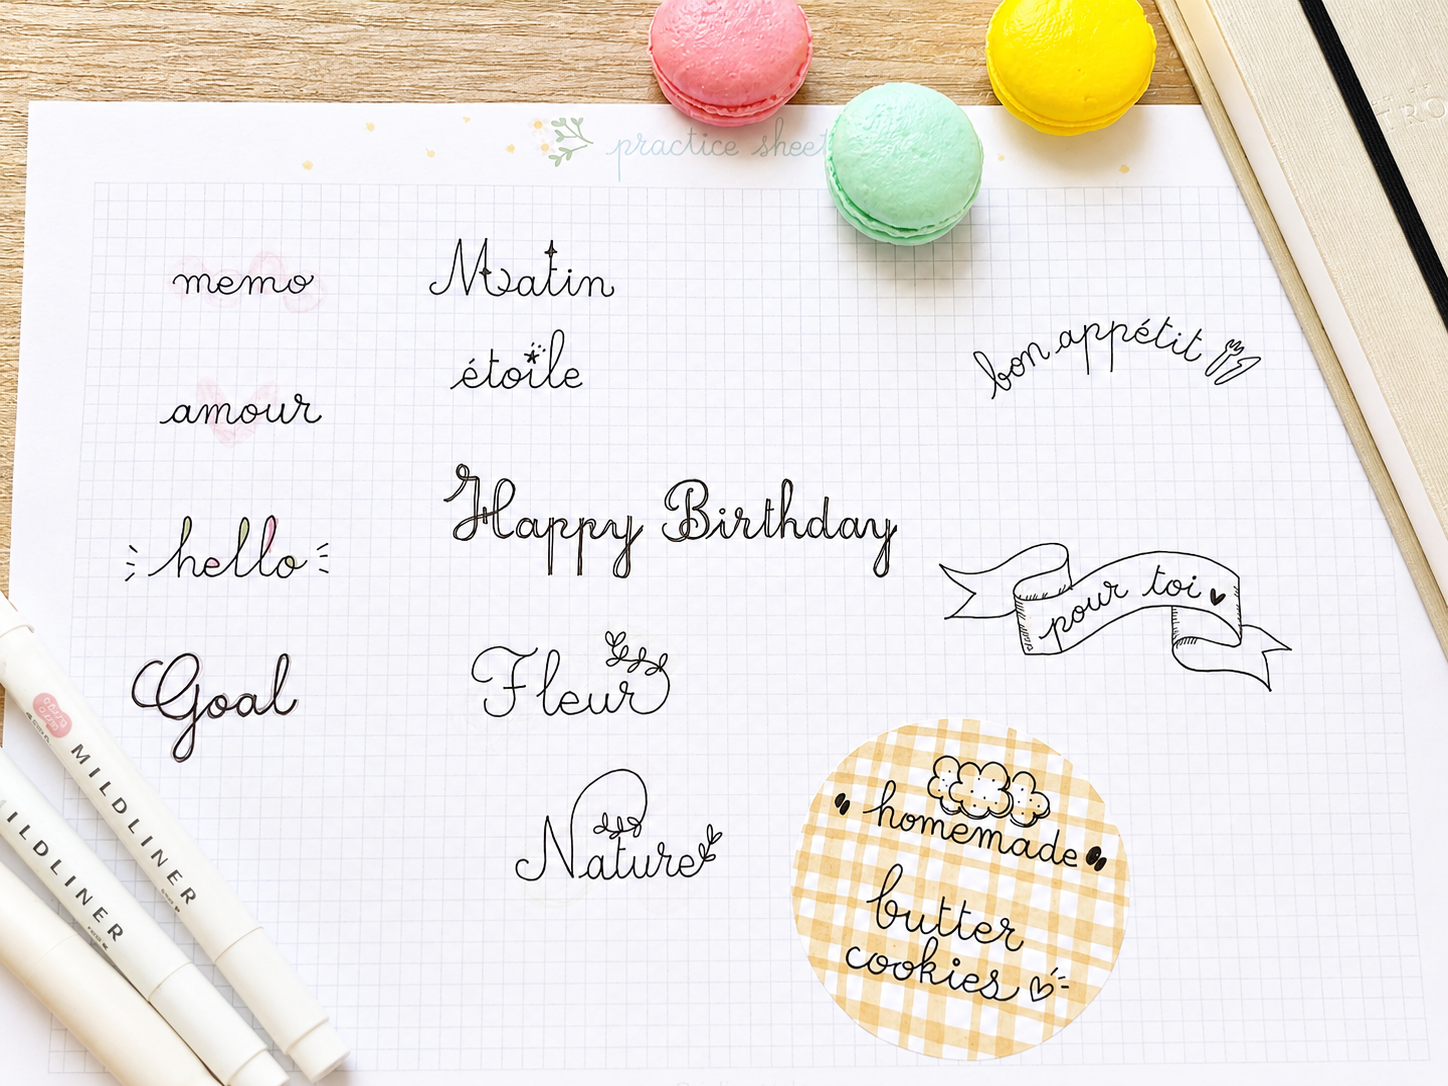 practice sheet
memo
amour
hello
Goal
Matin
étoile
Happy Birthday
Fleur
Nature
bon appétit
pour toi
homemade
butter
cookies
MILDLINER
MILDLINER